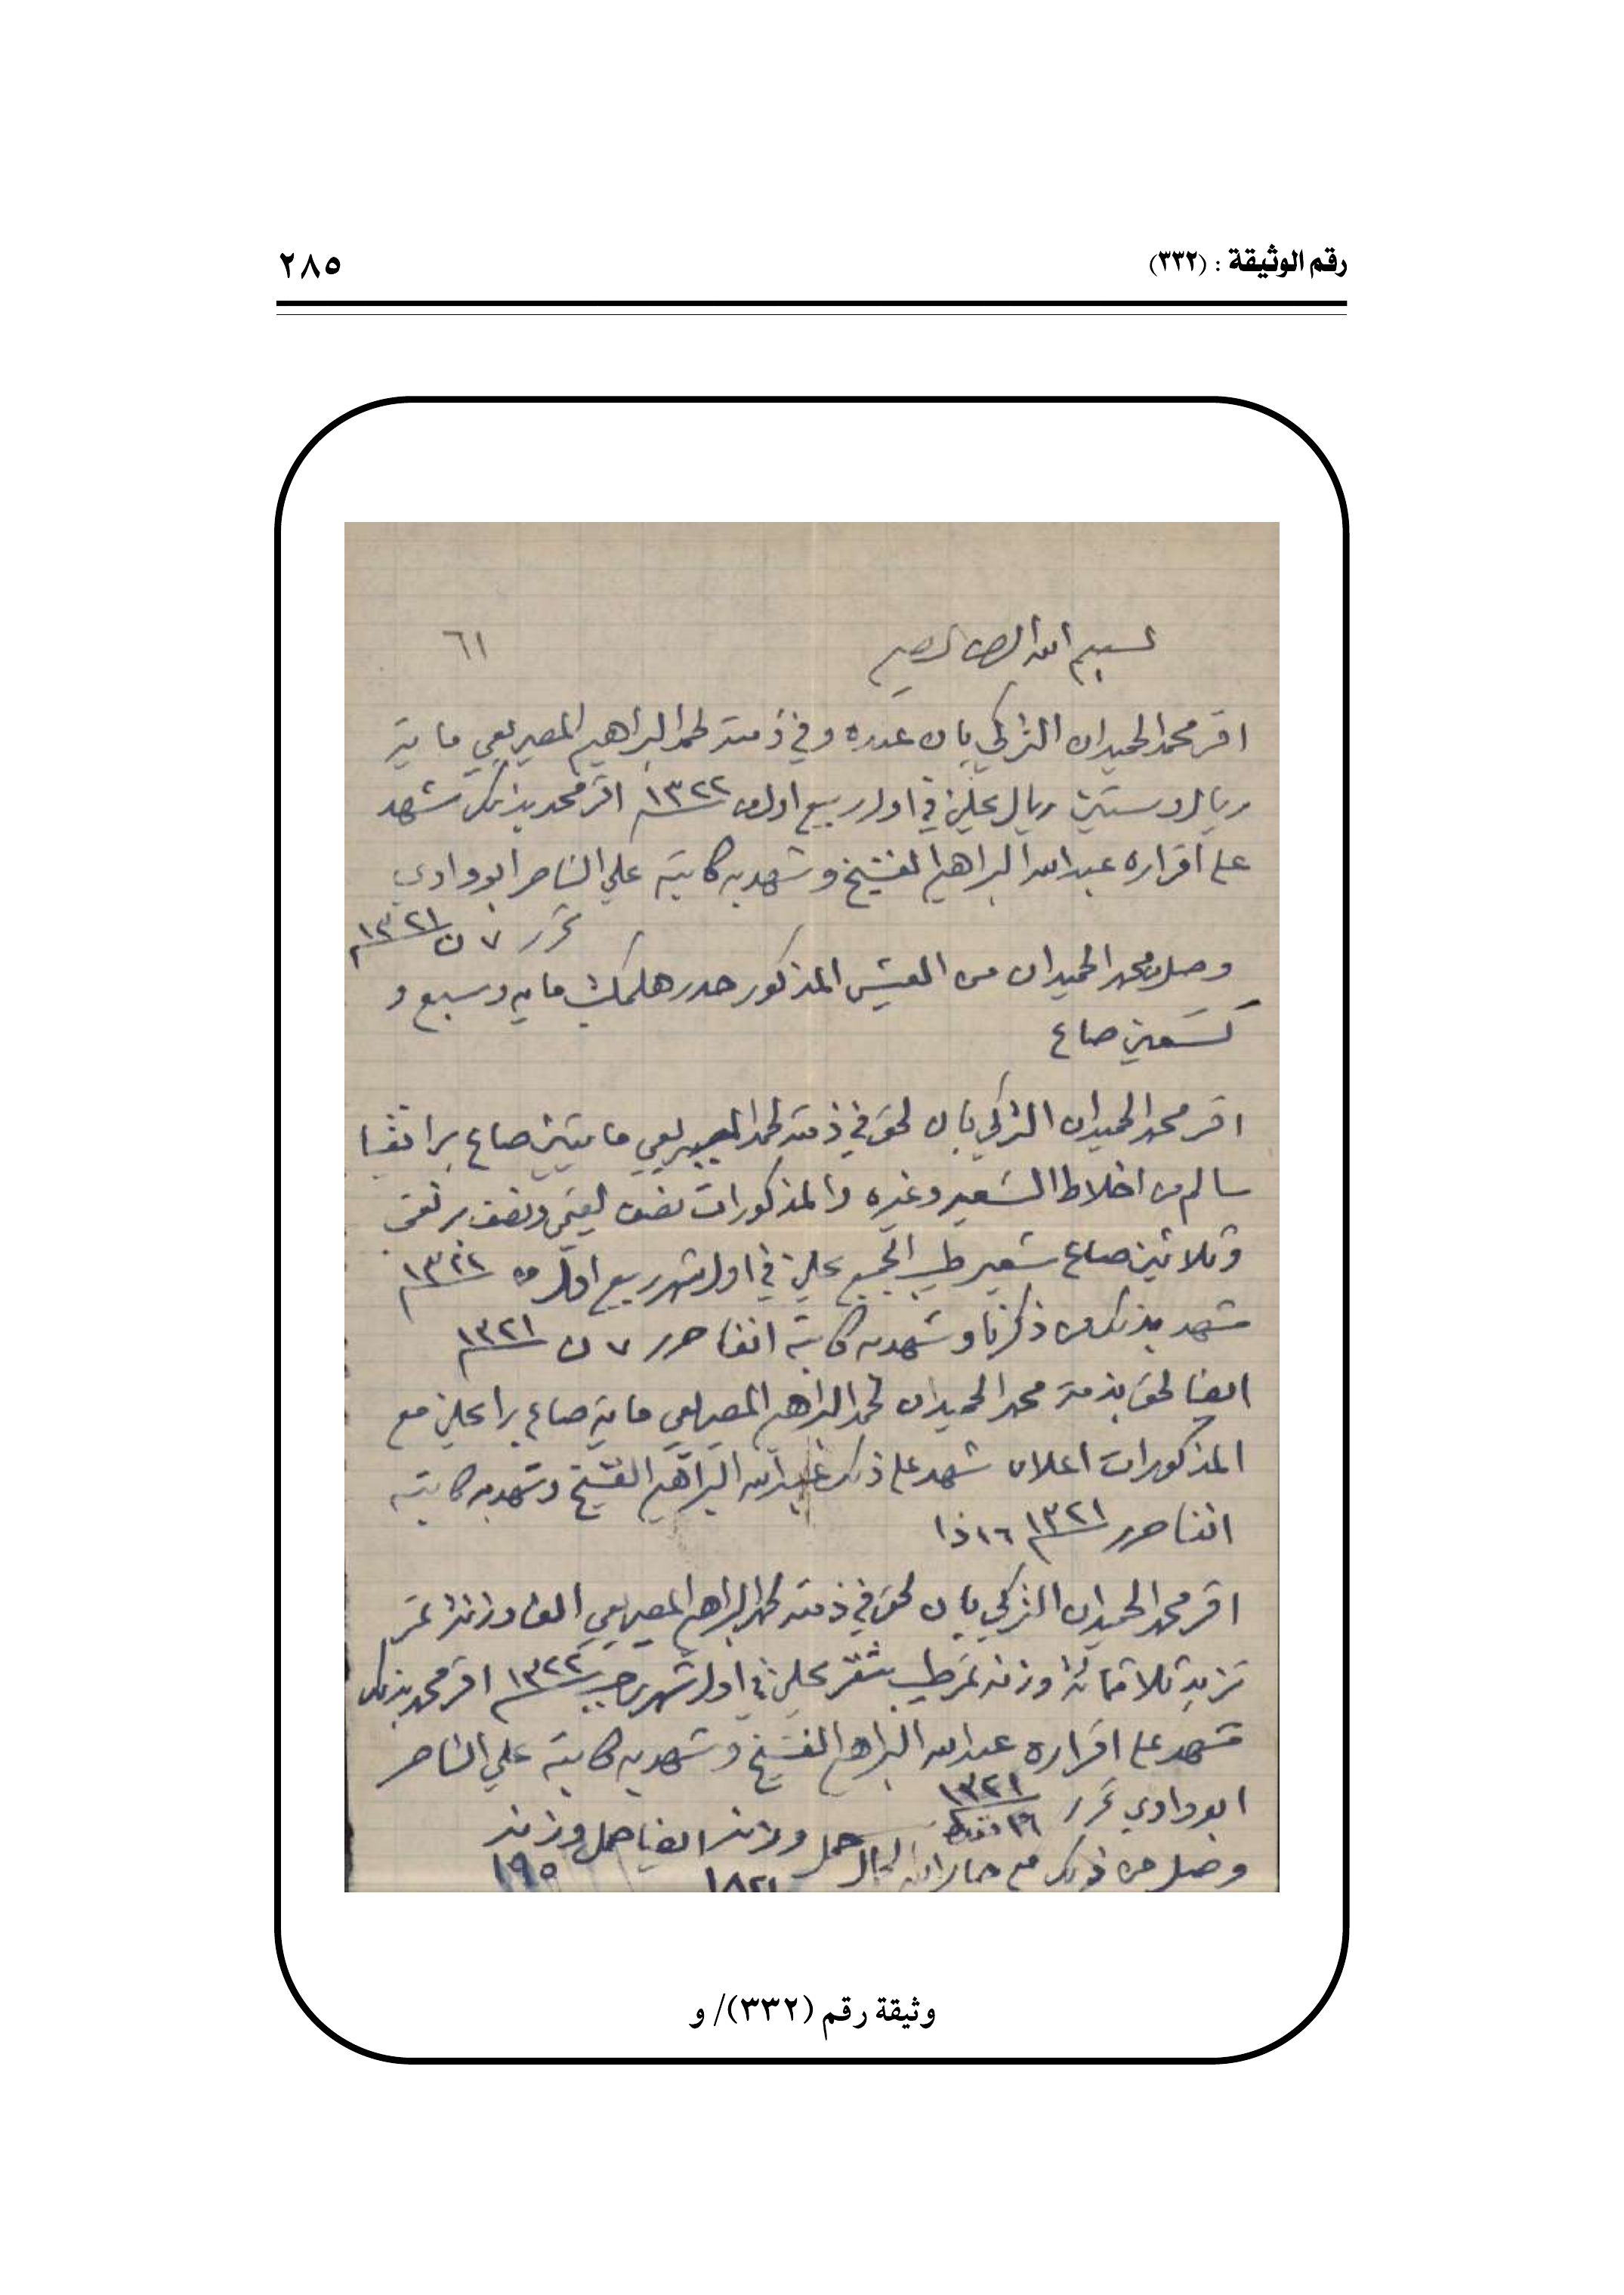 رقم الوثيقة : (٣٣٢)
٢٨٥
بسم الله الرحمن الرحيم
٦١
اقر محمد الحميدان التركي بان عنده وفي ذمته لمحمد البراهيم المصيريعي ماية
ريال وستين ريال يحلن في اول ربيع اول ١٣٢٢ اقر محمد بذلك شهد
على اقراره عبدالله البراهيم المفتيخ وشهد به كاتبه علي الناصر ابووادي
حرر ٧ ن ١٣٢١
وصل محمد الحميدان من العيش المذكور مايه وسبع و
تسعين صاع
اقر محمد الحميدان التركي بان لحق في ذمته لمحمد المصيريعي مايتين صاع بر انقيا
سالم من اخلاط الشعير وغيره والمذكورات نصف لقيمي ونصف بر نقي
وثلاثين صاع شعير طيب الجميع يحلن في اول شهر ربيع اول ١٣٢٢
شهد بذلك من ذكرنا وشهد به كاتبه انفا حرر ٧ ن ١٣٢١
ايضا لحق بذمة محمد الحميدان لمحمد البراهيم المصيريعي ماية صاع بر يحلن مع
المذكورات اعلاه شهد على ذلك عبدالله البراهيم الفتيخ وشهد به كاتبه
انفا حرر ١٣٢١ ١٦ ذا
اقر محمد الحميدان التركي بان لحق في ذمته لمحمد البراهيم المصيريعي الف وزنة تمر
تزيد ثلاثمائة وزنه تمر طيب يحلن في اول شهر رجب ١٣٢٢ اقر محمد بذلك
شهد على اقراره عبدالله البراهيم الفتيخ وشهد به كاتبه علي الناصر
ابووادي حرر ١٣٢١
وصل من ذلك مع جارالله حمل وزنة ايضا حمل وزنة
١٩٥
وثيقة رقم (٣٣٢)/ و